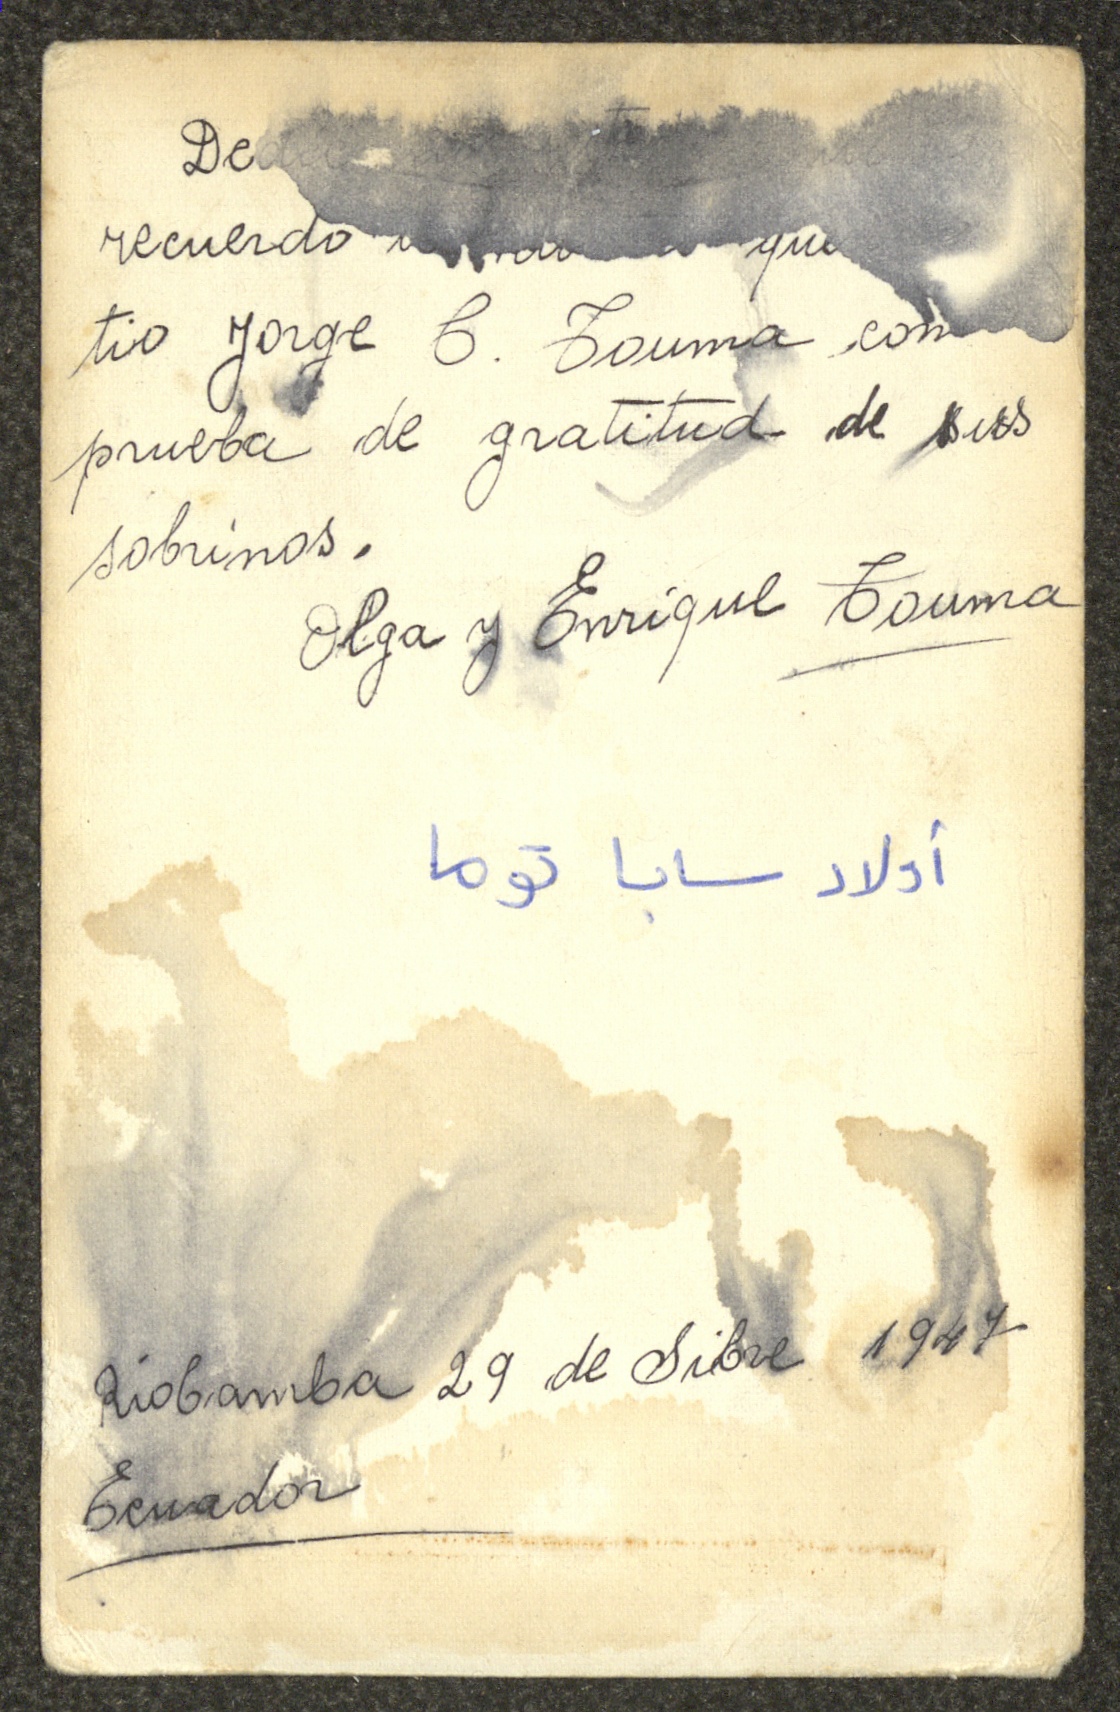 recuerdo
tio Jorge C. Touma com
prueba de gratitud de sus
sobrinos.
Olga y Enrique Touma
أولاد سابا توما
Riobamba 29 de Sibre 1947
Ecuador